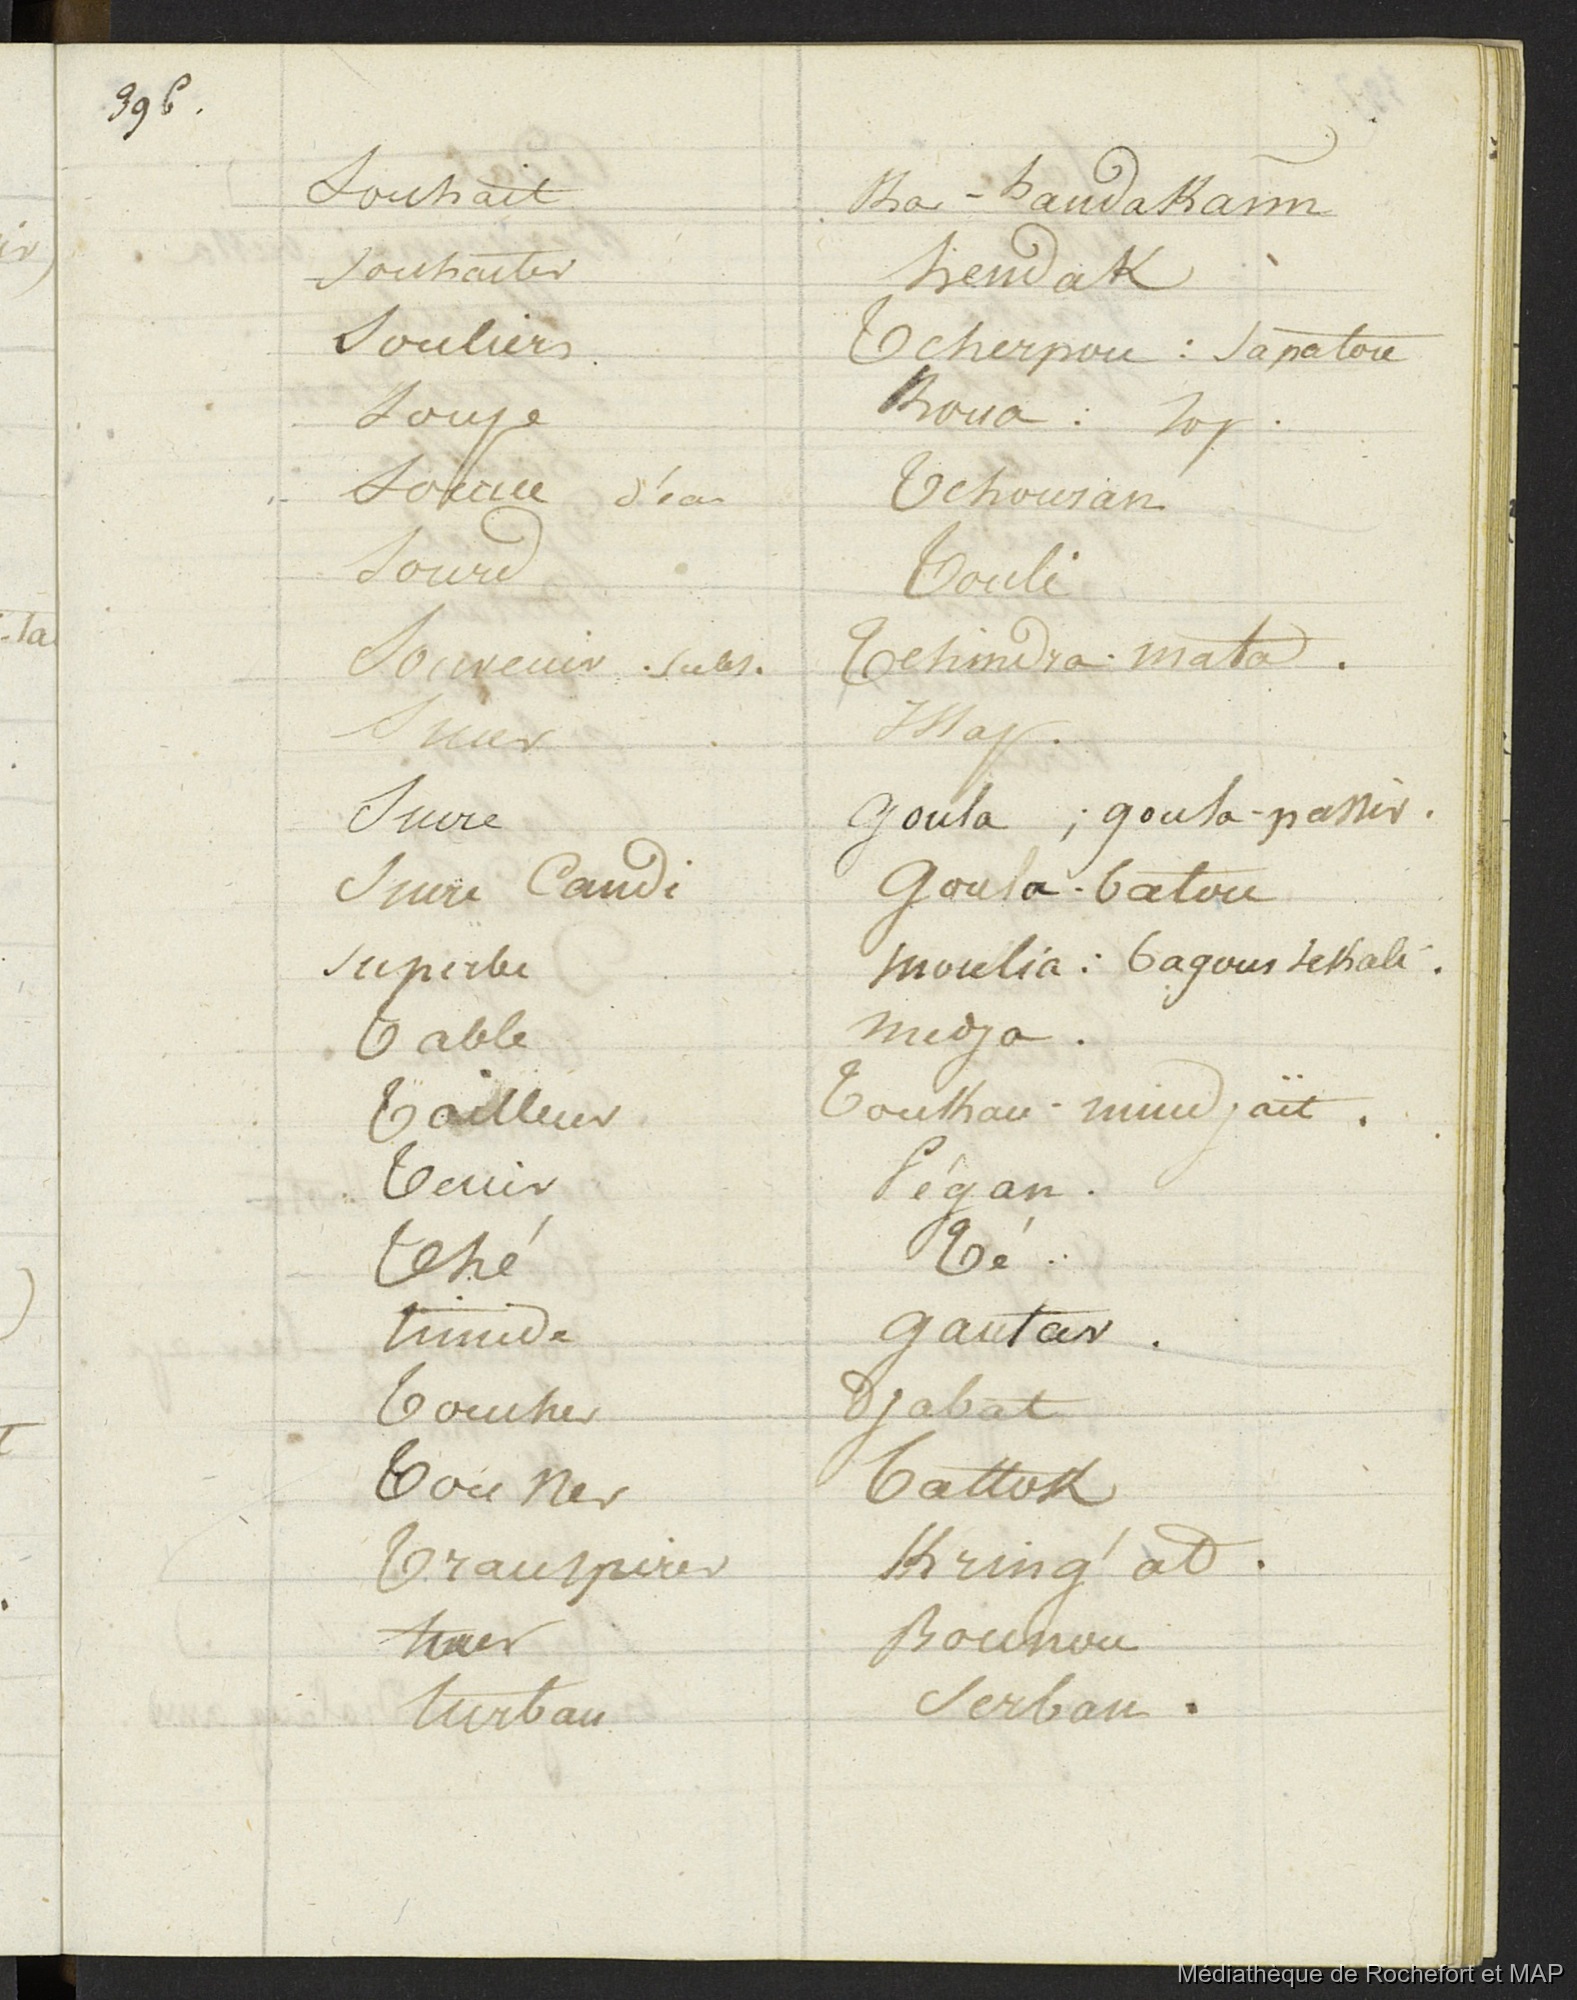 396.
Souhait Ka-handakann
Souhaiter hendak
Souliers Tcherpou : Sapatou
Soupe Koua : Sop.
Source d'eau Tchouran
Sourd Touli
Souvenir subs. Tchindra-mata.
Sucer Issap.
Sucre goula ; goula-passir.
Sucre Candi goula-batou
superbe moulia : bagous sekali.
Table medja.
Tailleur Toukan-mindjaït.
Tenir Pégan.
Thé Té.
timide gantar.
Toucher Djabat
Tousser Battok
Transpirer Kring'at.
tuer Bounou
turban Serban.
Médiathèque de Rochefort et MAP